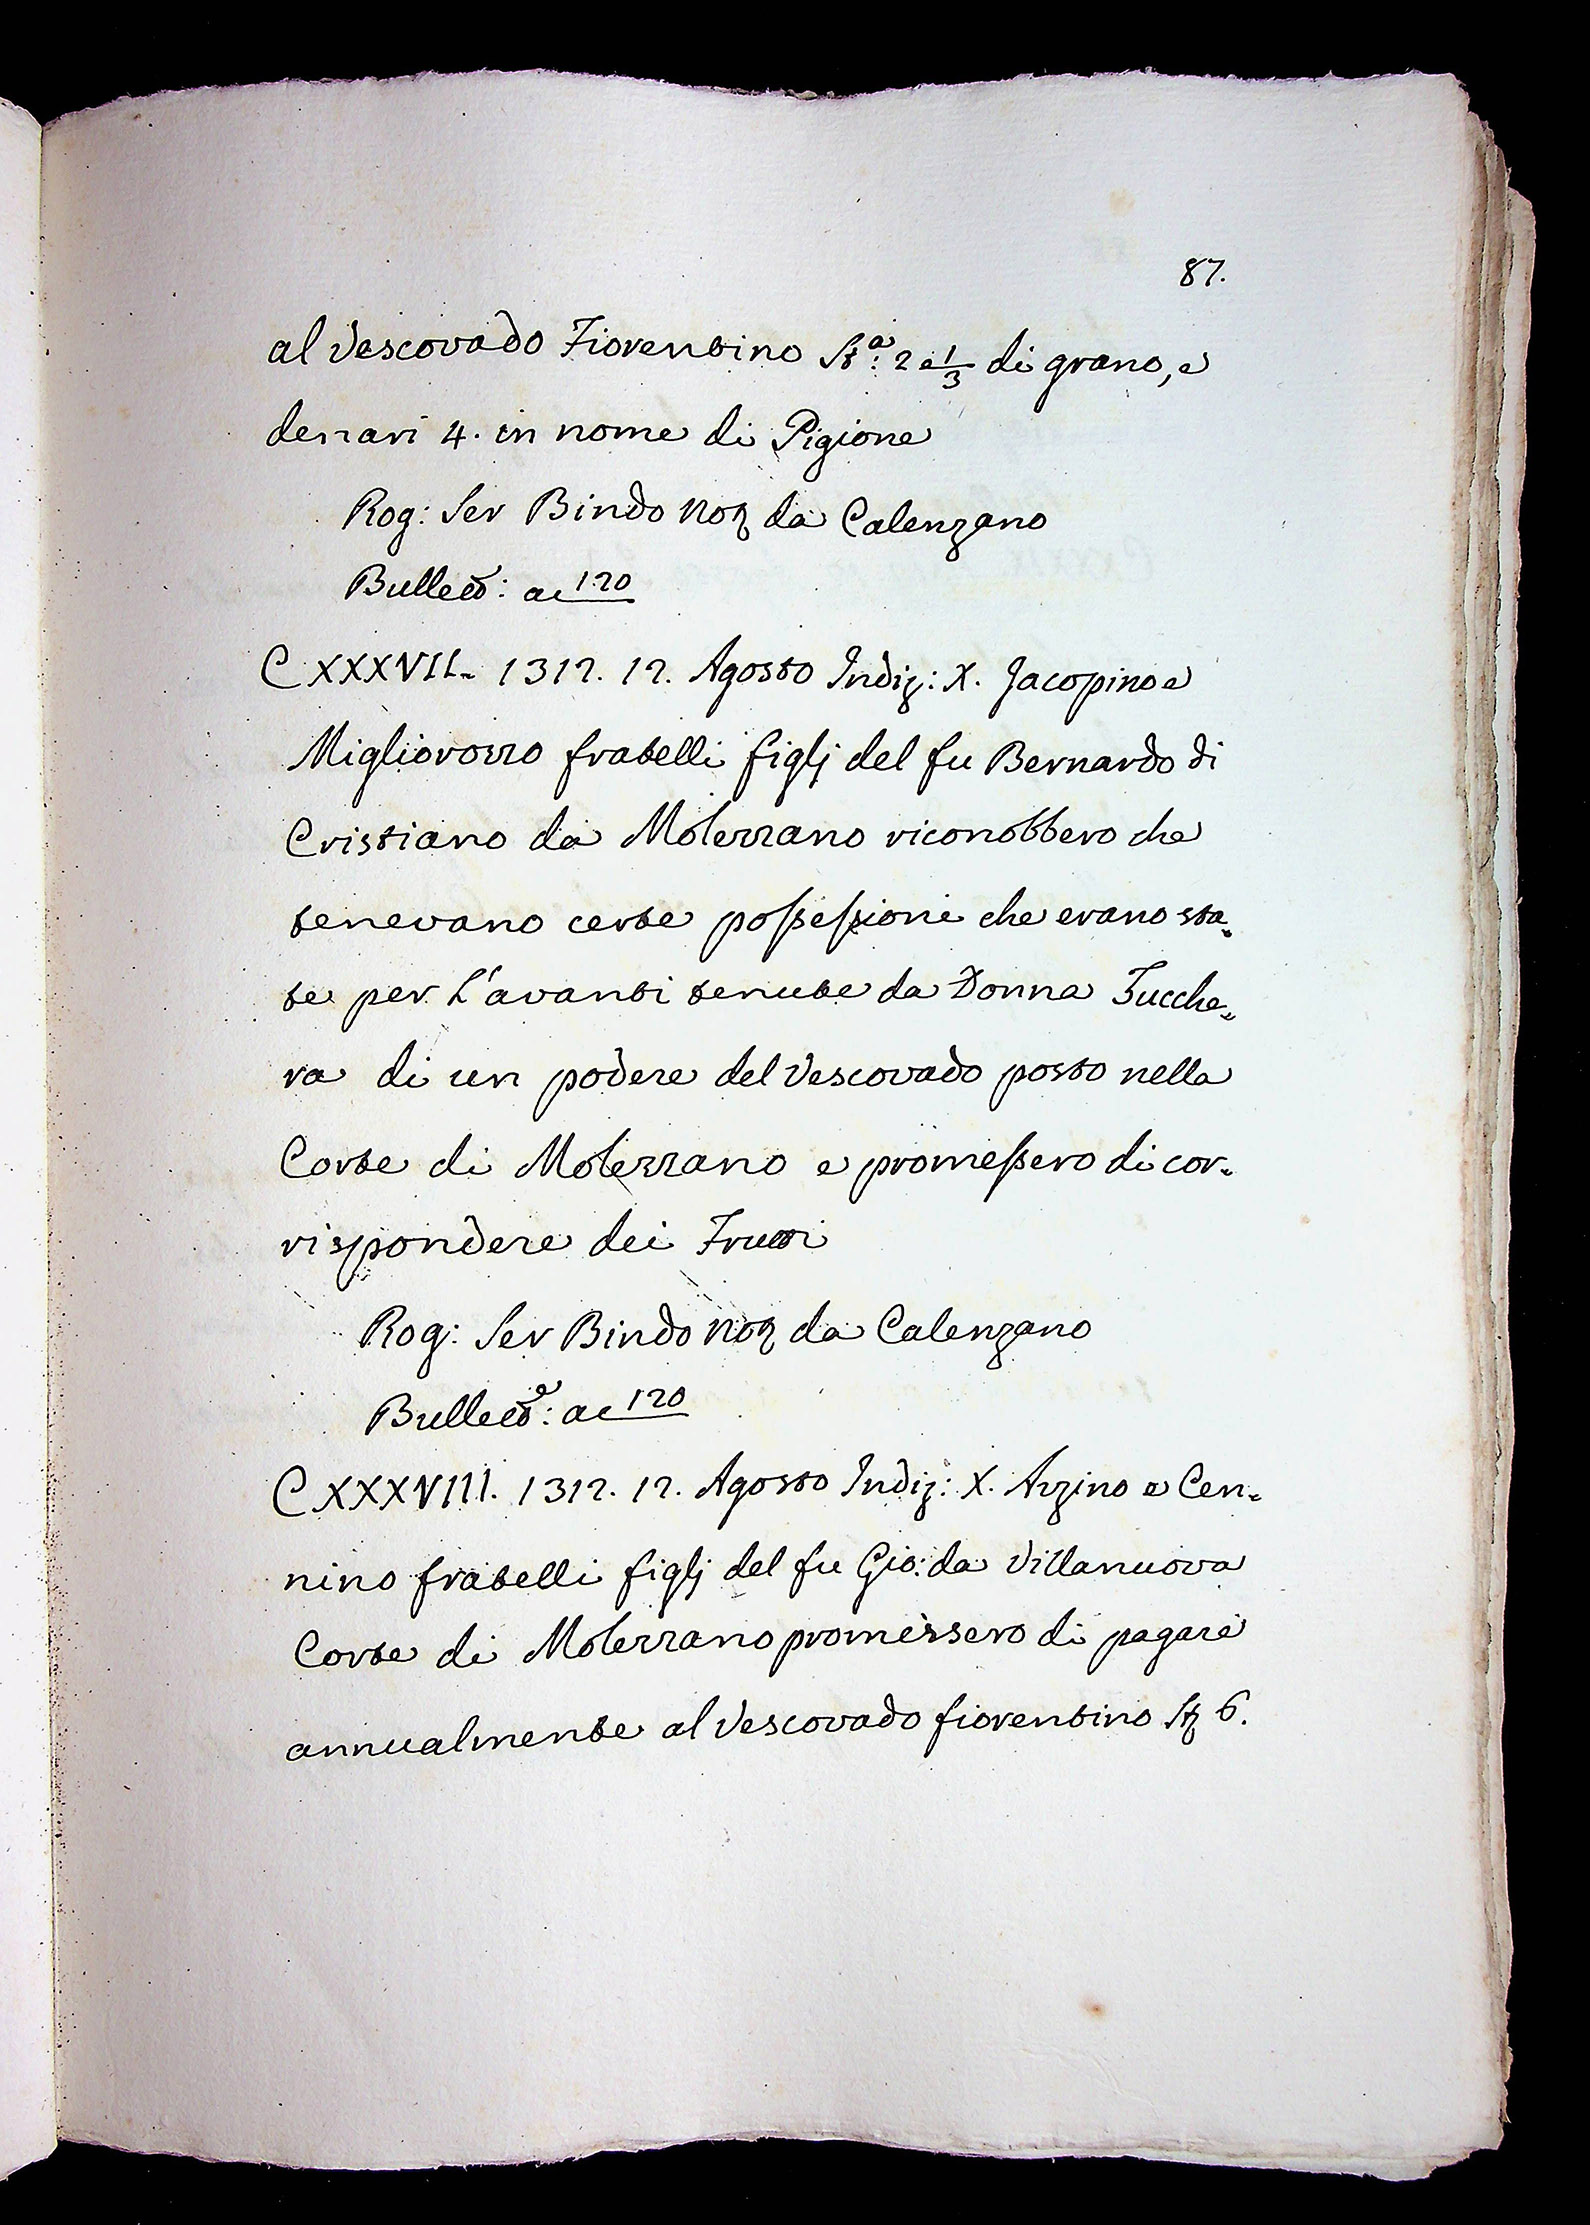 87.
al Vescovado Fiorentino St.ª: 2 e 1/3 di grano, e
denari 4. in nome di Pigione
Rog: Ser Bindo Noꝫ da Calenzano
Bullett: ac 120
CXXXVII. 1312. 12. Agosto Indiz: X. Jacopino e
Migliorozzo fratelli figlj del fu Bernardo di
Cristiano da Molezzano riconobbero che
tenevano certe possessioni che erano sta-
te per l'avanti tenute da Donna Zucche-
ra di un podere del Vescovado posto nella
Corte di Molezzano e promessero di cor-
rispondere dei Frutti
Rog: Ser Bindo Noꝫ da Calenzano
Bullettª: ac 120
CXXXVIII. 1312. 12. Agosto Indiz: X. Azzino e Cen-
nino fratelli figlj del fu Gio: da Villanuova
Corte di Molezzano promessero di pagare
annualmente al Vescovado fiorentino Stꝫ 6.